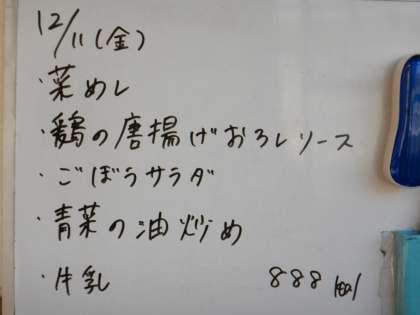 12/11(金)
・菜めし
・鶏の唐揚げおろしソース
・ごぼうサラダ
・青菜の油炒め
・牛乳 888 kcal